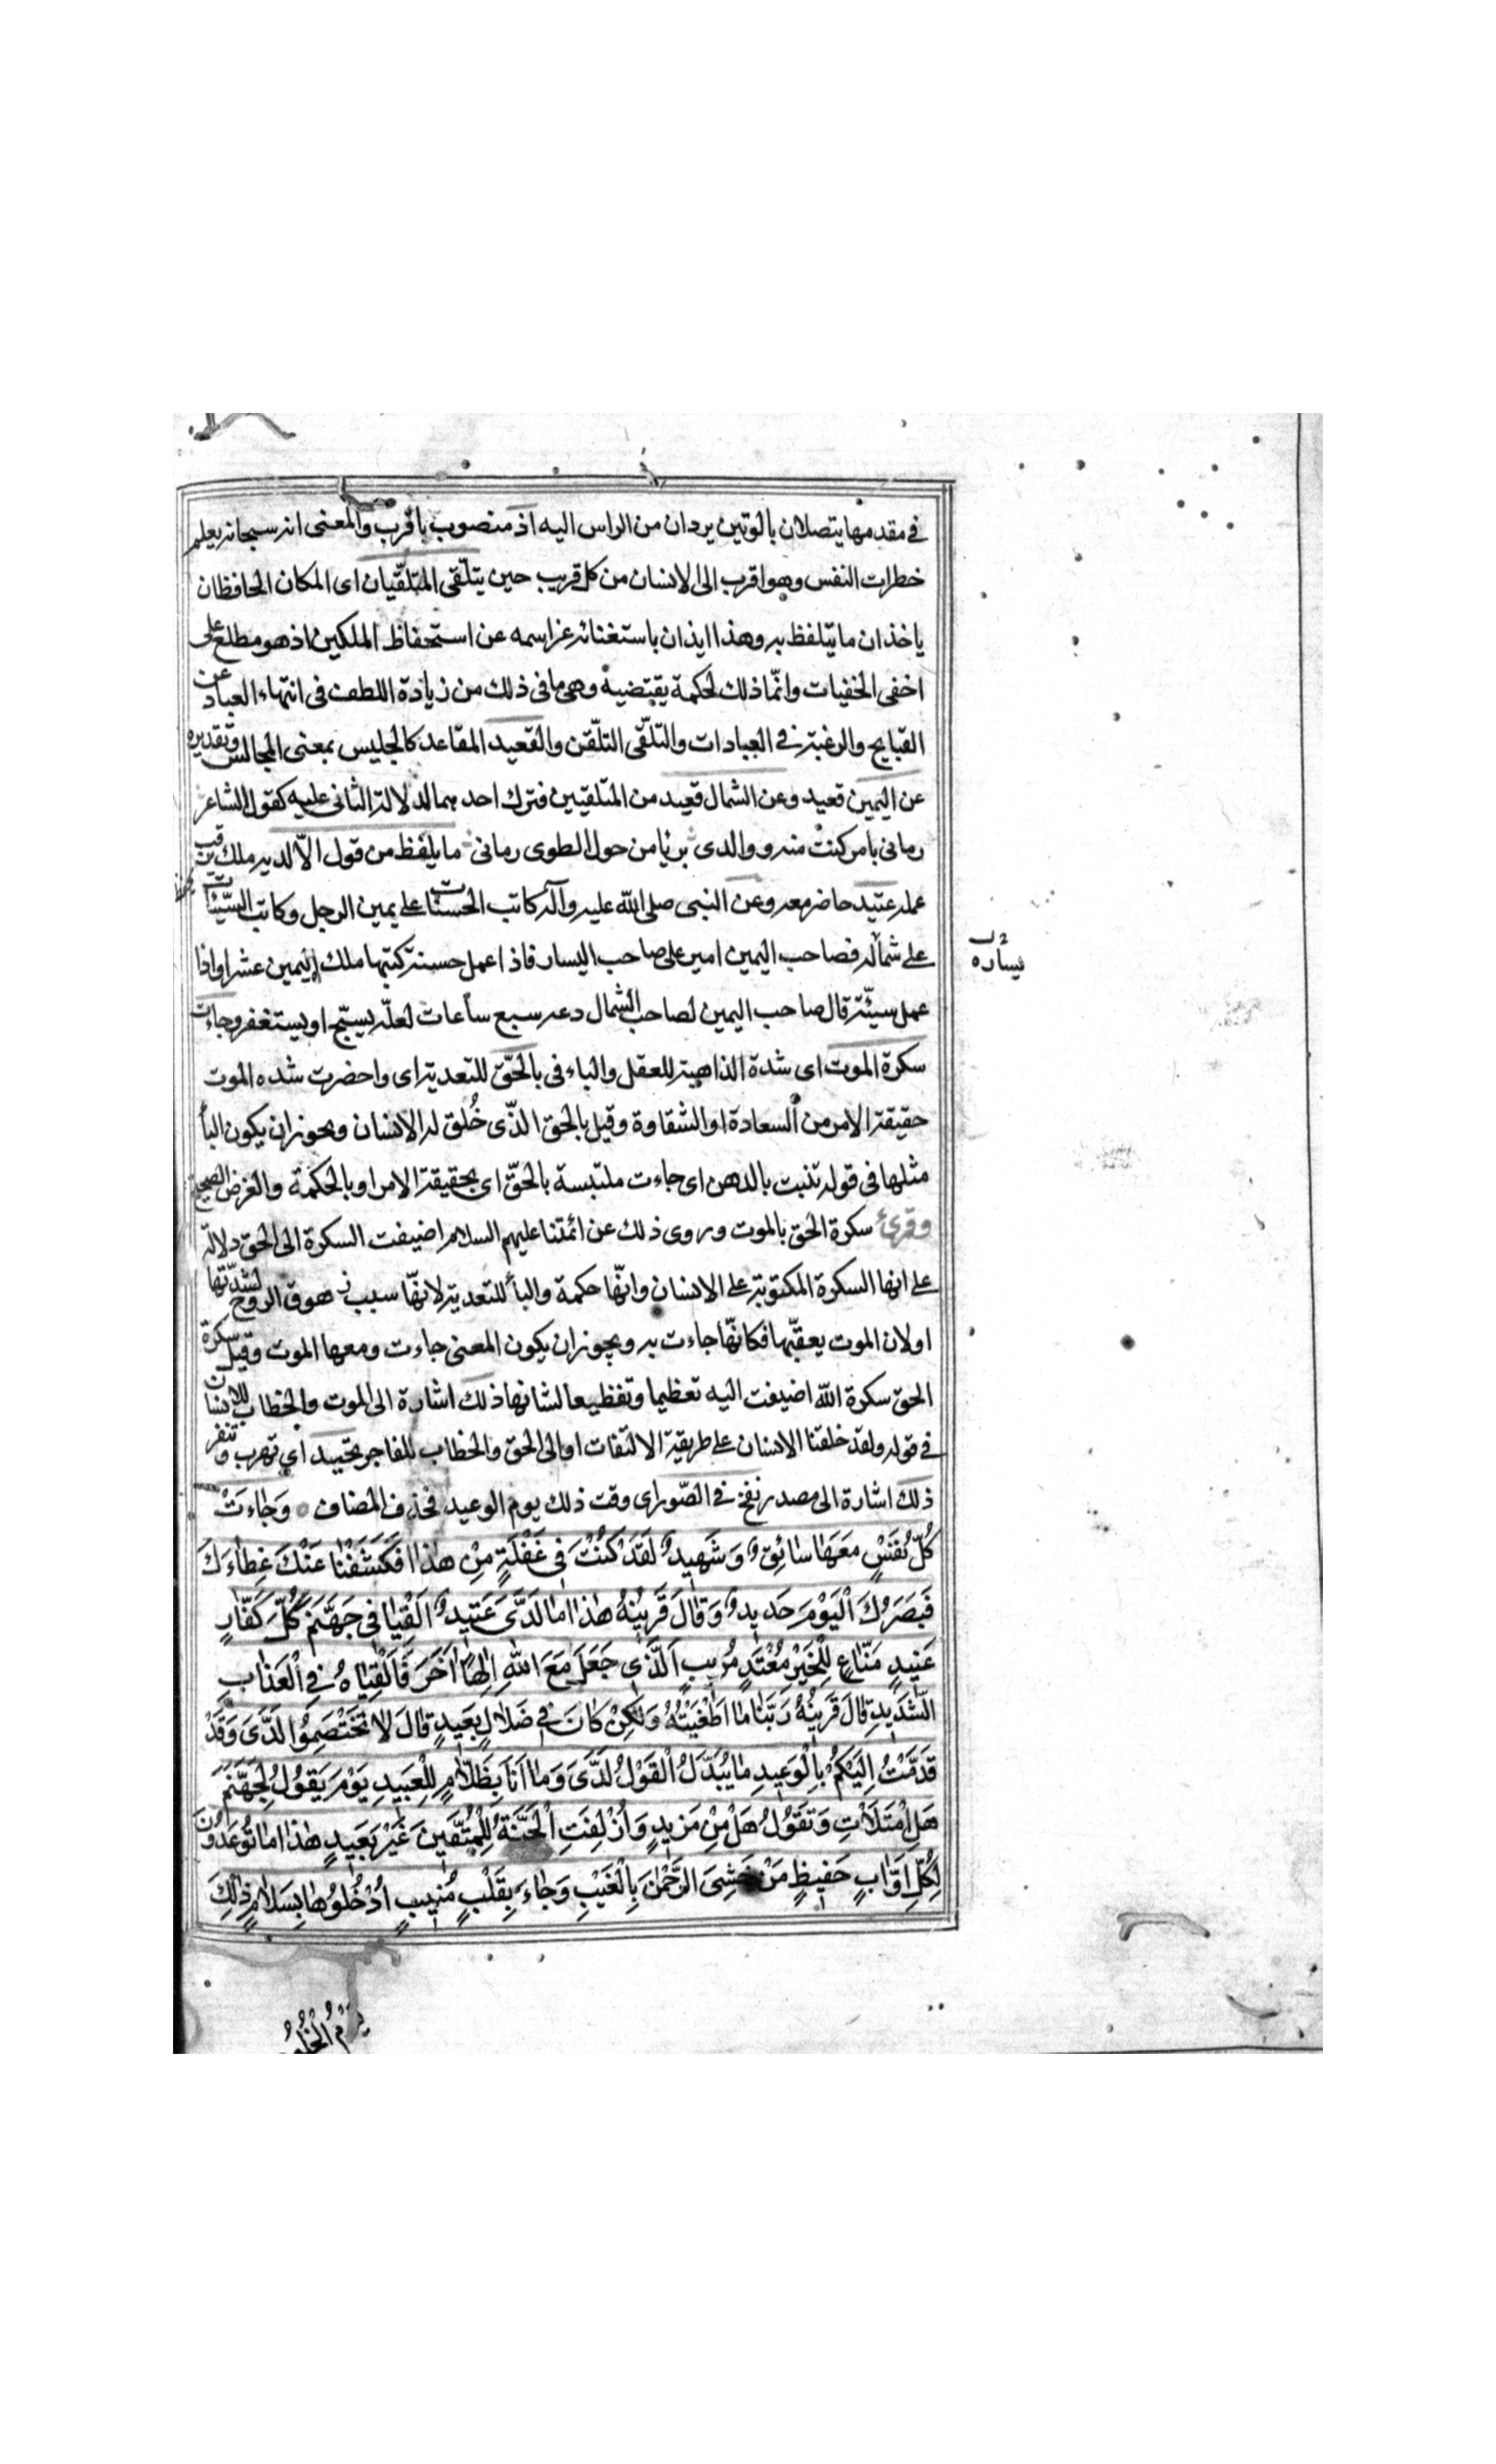 في مقدمها يتصلان بالوتين يردان من الراس اليه اذ منصوب باقرب والمعنى انه سبحانه يعلم
خطرات النفس وهو اقرب الى الانسان من كل قريب حين يتلقى المتلقيان اى المكان الحافظان
ياخذان ما يتلفظ به وهذا ايذان باستغنائه عز اسمه عن استحفاظ الملكين اذ هو مطلع على
اخفى الخفيات وانّما ذلك لحكمة يقتضيه وهى ما فى ذلك من زيادة اللطف فى انتهاء العباد عن
القبايح والرغبة في العبادات والتلقّى التلقّن والقعيد المقاعد كالجليس بمعنى المجالس وتقديره
عن اليمين قعيد وعن الشمال قعيد من المتلقيين فترك احدهما لدلالة الثانى عليه كقول الشاعر
رمانى بامر كنت منه ووالدى بريًا من حول الطوى رمانى ما يلفظ من قول الّا لديه ملك يرقب
عمله عتيد حاضر معه وعن النبى صلى الله عليه وآله كاتب الحسنات على يمين الرجل وكاتب السيّئات
على شماله فصاحب اليمين امين على صاحب اليسار فاذا عمل حسنة كتبها ملك اليمين عشرا واذا
يساره
عمل سيّئة قال صاحب اليمين لصاحب الشمال دعه سبع ساعات لعلّه يسبّح او يستغفر وجاءت
سكرة الموت اى شدة الذاهبة للعقل والباء فى بالحقّ للتعدية اى واحضرت شده الموت
حقيقة الامر من السعادة او الشقاوة وقيل بالحق الذّى خُلق له الانسان ويجوز ان يكون البأ
مثلها فى قوله تنبت بالدهن اى جاءت ملتبسة بالحقّ اى بحقيقة الامر او بالحكمة والغرض الصحيح
وقرئ سكرة الحق بالموت وروى ذلك عن ائمتنا عليهم السلام اضيفت السكرة الى الحق دلالة
على انها السكرة المكتوبة على الانسان وانّها حكمة والبأ للتعدية لانّها سبب زهوق الروح لشدّتها
او لان الموت يعقّبها فكانّها جاءت به ويجوز ان يكون المعنى جاءت ومعها الموت وقيل سكرة
الحق سكرة الله اضيفت اليه تعظيما وتفظيعا لشانها ذلك اشارة الى الموت والخطاب للانسان
في قوله ولقد خلقنا الانسان على طريقة الالتفات او الى الحق والخطاب للفاجر تحيد اى تهرب وتنفر
ذلك اشارة الى مصدر نفخ في الصّور اى وقت ذلك يوم الوعيد فحذف المضاف وَجٰاءَتْ
كُلُّ نَفْسٍ مَعَهٰا سٰائِقٌ وَ شَهيدٌ لَقَدْ كُنْتَ فى غَفْلَةٍ مِنْ هٰذٰا فَكَشَفْنٰا عَنْكَ غِطٰاءَكَ
فَبَصَرُكَ الْيَوْمَ حَديدٌ وَقٰالَ قَرينُهُ هٰذٰا مٰا لَدَىَّ عَتيدٌ اَلْقِيٰا فى جَهَنَّمَ كُلَّ كَفّٰارٍ
عَنيدٍ مَنّٰاعٍ لِلْخَيْرِ مُعْتَدٍ مُريبٍ اَلَّذى جَعَلَ مَعَ اللّٰهِ اِلٰهًا اٰخَرَ فَاَلْقِيٰاهُ فِى الْعَذٰابِ
الشَّديدِ قٰالَ قَرينُهُ رَبَّنٰا مٰا اَطْغَيْتُهُ وَلٰكِنْ كٰانَ فى ضَلٰالٍ بَعيدٍ قٰالَ لٰا تَخْتَصِمُوا لَدَىَّ وَقَدْ
قَدَّمْتُ اِلَيْكُمْ بِالْوَعيدِ مٰا يُبَدَّلُ الْقَوْلُ لَدَىَّ وَمٰا اَنَا بِظَلّٰامٍ لِلْعَبيدِ يَوْمَ يَقُولُ لِجَهَنَّمَ
هَلِ امْتَلَأْتِ وَتَقُولُ هَلْ مِنْ مَزيدٍ وَاُزْلِفَتِ الْجَنَّةُ لِلْمُتَّقينَ غَيْرَ بَعيدٍ هٰذٰا مٰا تُوعَدُونَ
لِكُلِّ اَوّٰابٍ حَفيظٍ مَنْ خَشِىَ الرَّحْمٰنَ بِالْغَيْبِ وَجٰاءَ بِقَلْبٍ مُنيبٍ اُدْخُلُوهٰا بِسَلٰامٍ ذٰلِكَ
يَوْمُ الْخُلُو